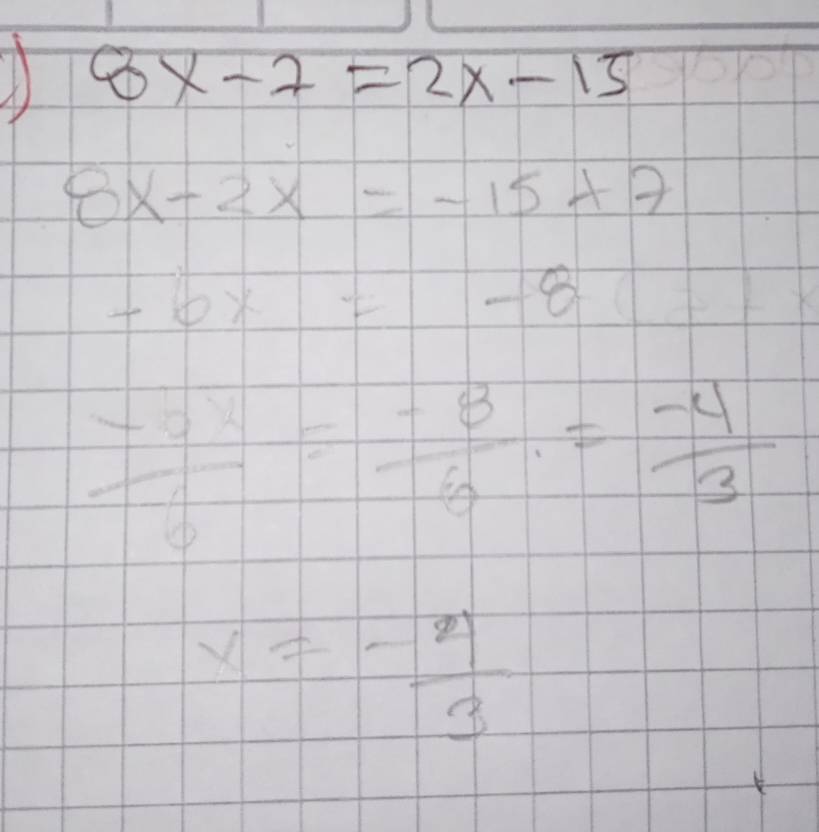 ) 8x - 7 = 2x - 15
8x - 2x = -15 + 7
-6x = -8
-6x/6 = -8/6 . = -4/3
x = -4/3